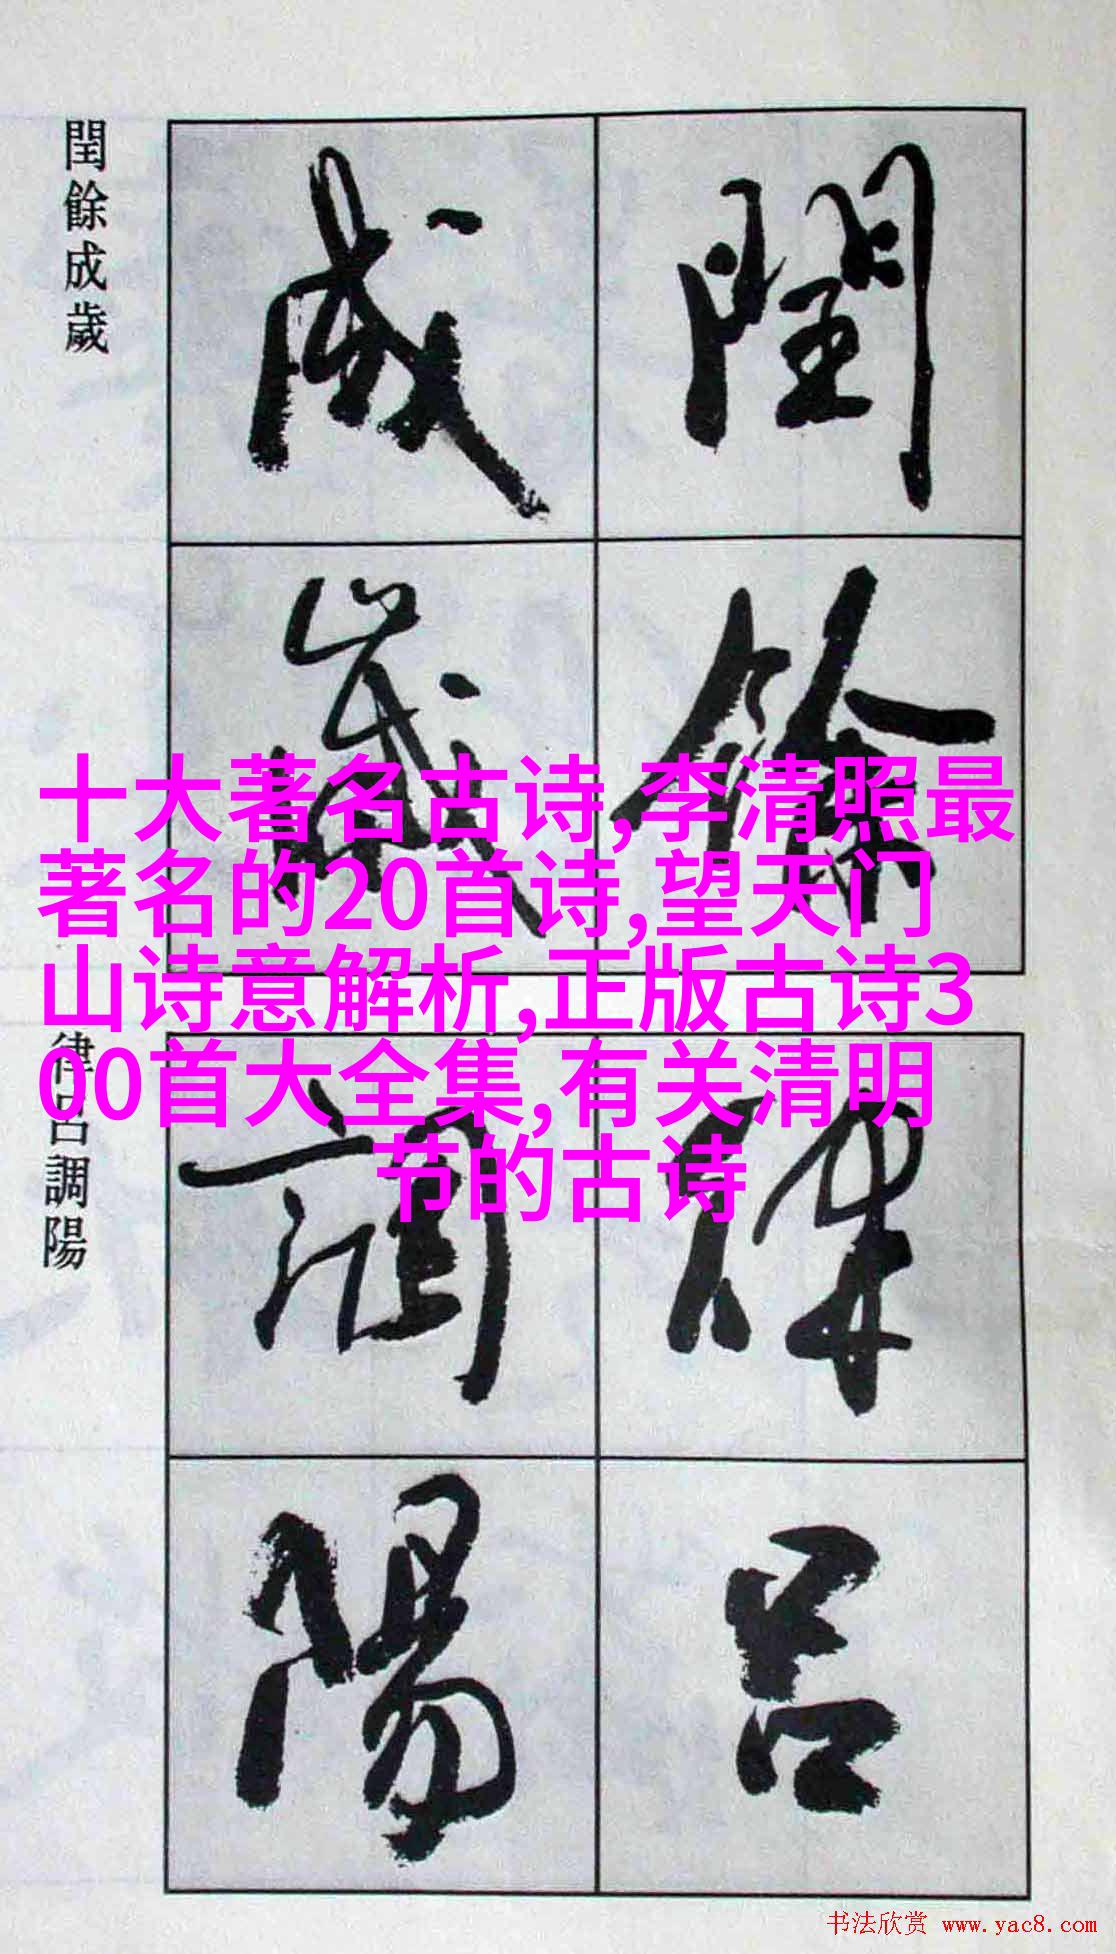 閏餘成歲
閏餘
成歲
十大著名古诗,李清照最
著名的20首诗,望天门
山诗意解析,正版古诗3
00首大全集,有关清明
节的古诗
律呂調陽
律呂
調陽
书法欣赏 www.yac8.com